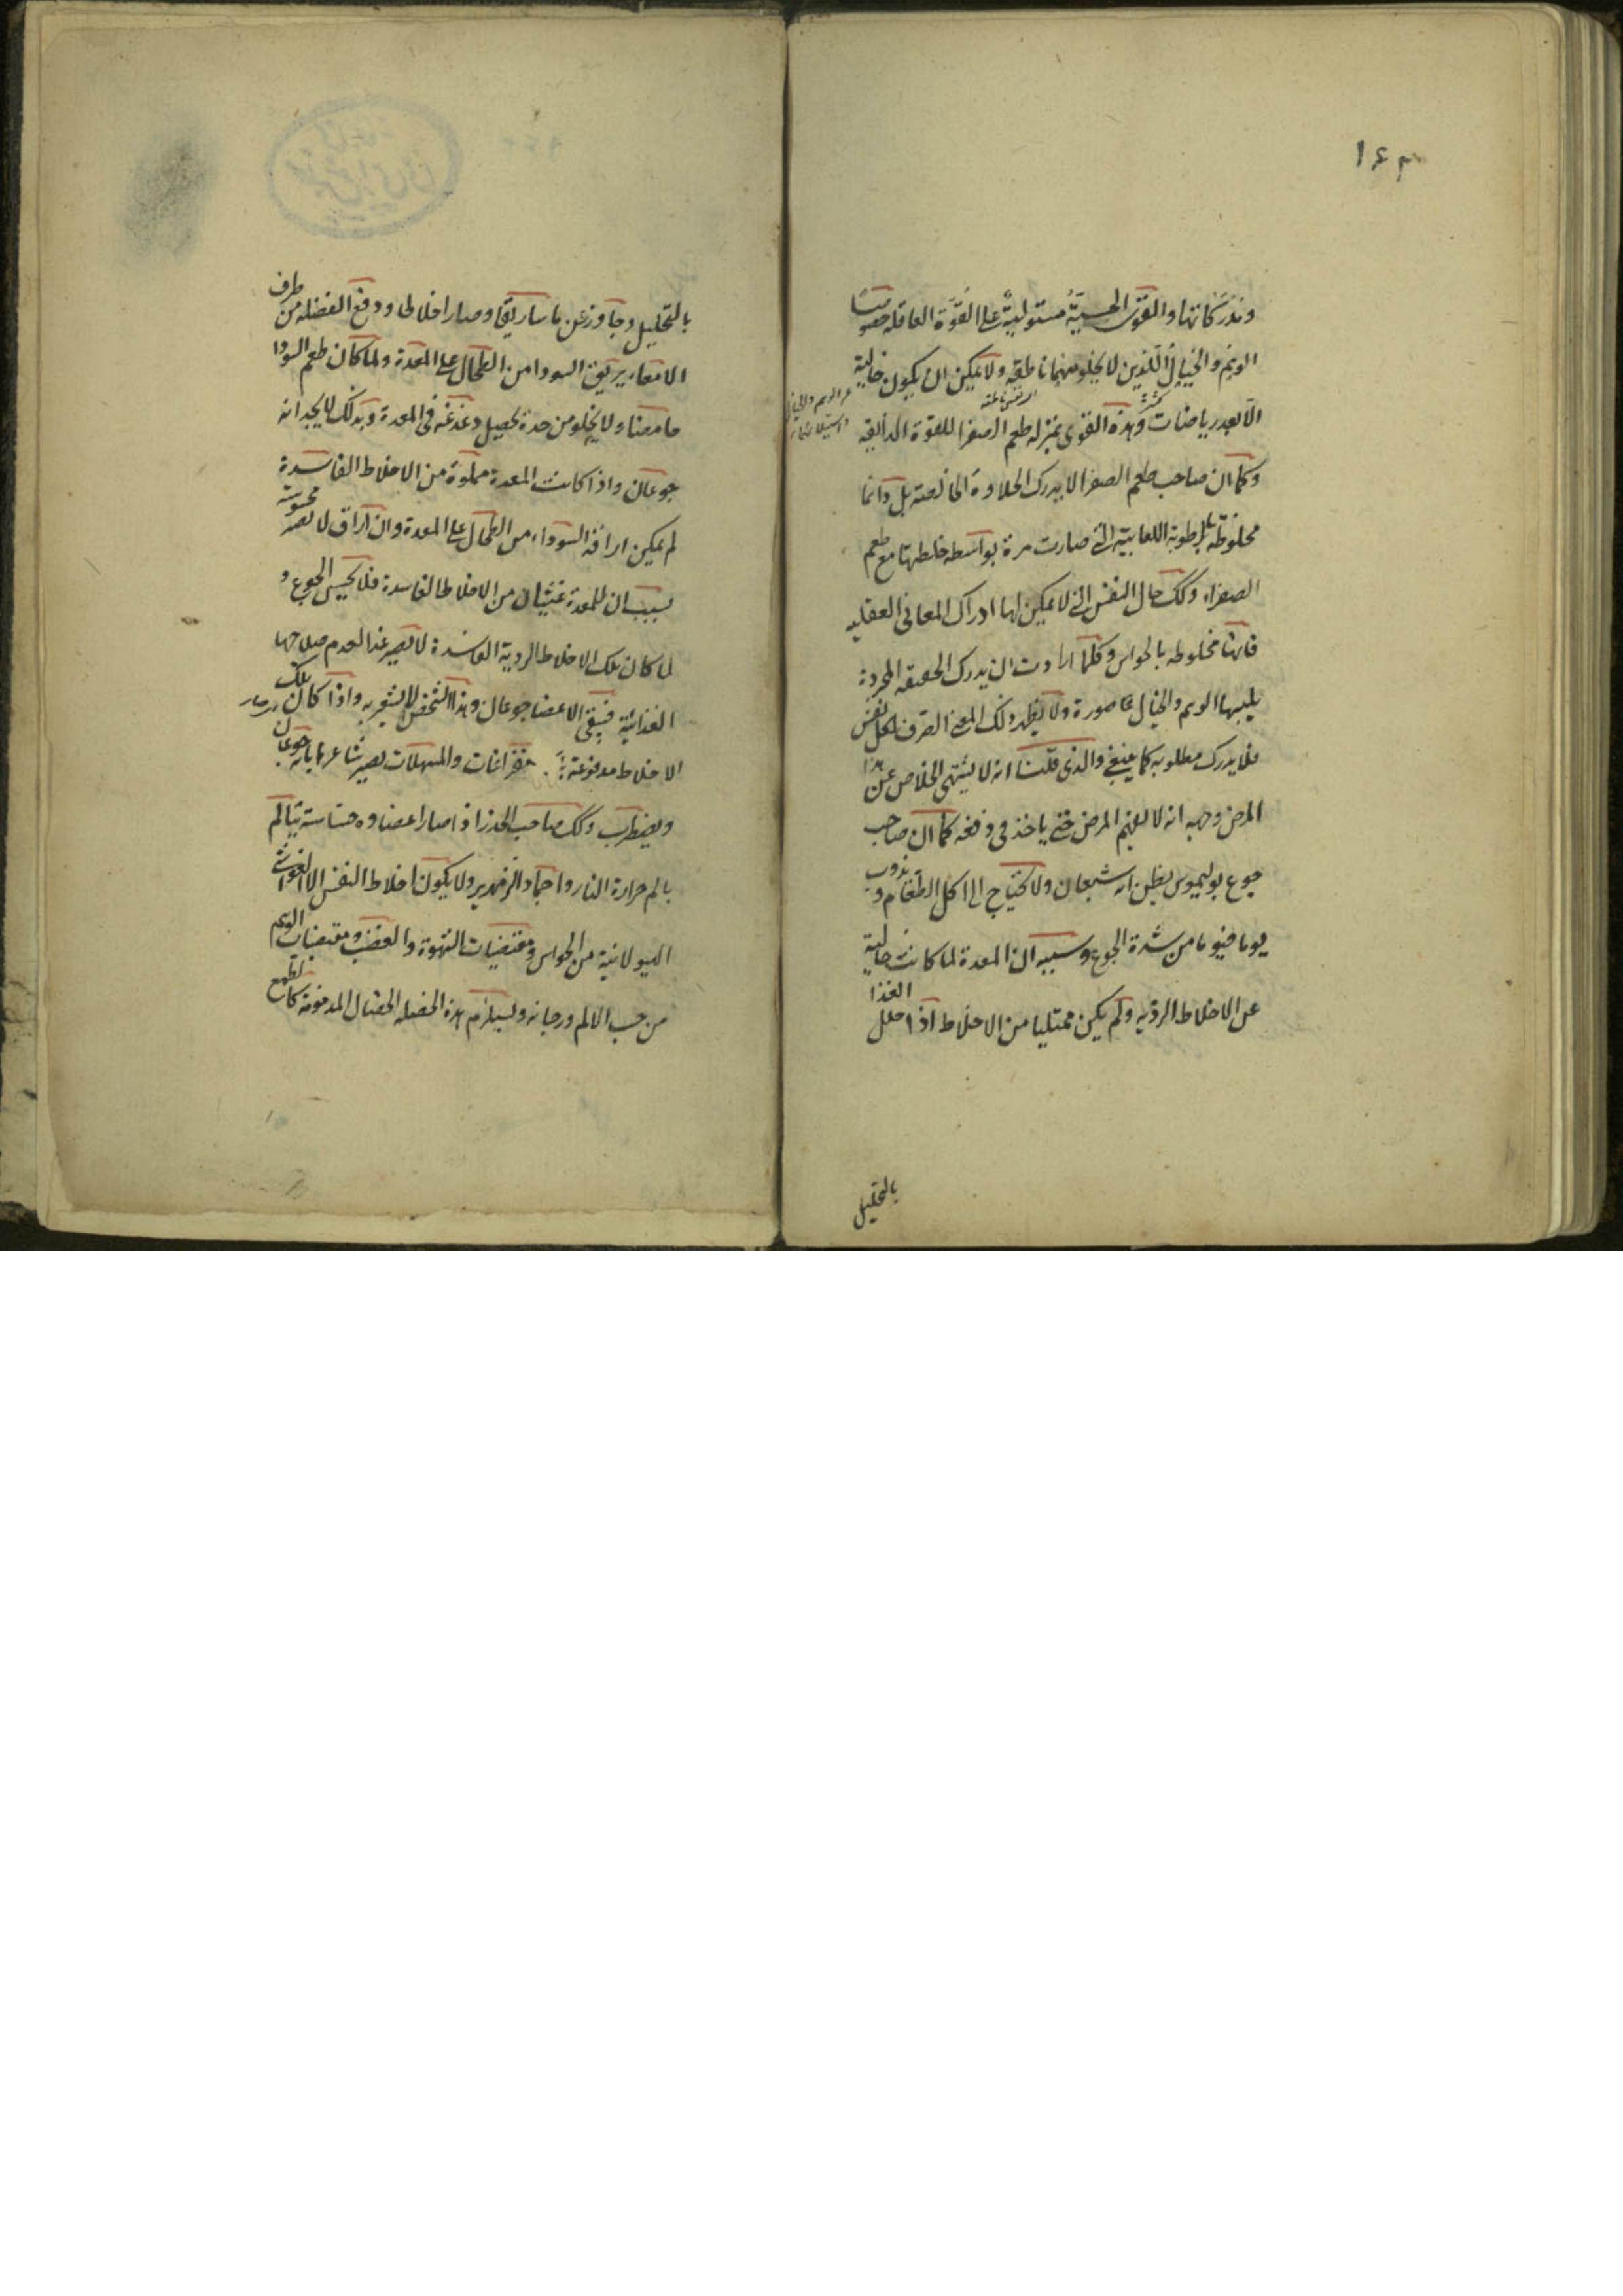 ١٤٣
ومدركاتها والقوى الحسية مستولية على القوة العاقلة خصوصا
الوهم والخيال اللذين لا يخلو منهما ناطقه ولا يمكن ان يكون خالية
عن الوهم والخيال
الا بعد رياضات كثيرة وهذه القوى بمنزلة طعم الصفرا للقوة الذائقة
وكما ان صاحب طعم الصفرا لا يدرك الحلاوة الخالصة بل دائما
مخلوطة بالرطوبة اللعابية التي صارت مرة بواسطه خلطها مع طعم
الصفراء وكك حال النفس التي لا يمكن لها ادراك المعانى العقليه
فانها مخلوطه بالحواس وكلما ارادت ان يدرك الحقيقه المجردة
يلبسها الوهم والخيال صورة ولا يظهر ذلك المعنى الصرف لكل نفس
فلا يدرك مطلوبه كما ينبغى والذى قلنا انه لا يشتهى الخلاص عن هذا
المرض وجهه انه لا يفهم المرض حتى ياخذ فى دفعه كما ان صاحب
جوع بوليموس يظن انه شبعان ولا يحتاج الى اكل الطعام ويذوب
يوما فيوما من شدة الجوع وسببه ان المعدة لما كانت خالية
عن الاخلاط الرديه ولم يكن ممتليا من الاخلاط اذا حلل الغذا
بالتحليل
بالتحليل وجاوز عن ماساريقا وصار اخلاطا ودفع الفضله من طرف
الامعاء يريق السودا من الطحال على المعدة ولما كان طعم السودا
حامضا ولا يخلو من حدة يحصل دغدغه فى المعدة وبذلك يجد انه
جوعان واذا كانت المعدة مملوة من الاخلاط الفاسدة
لم يمكن اراقة السوداء من الطحال على المعدة وان اراق لا يصير محسوسة
بسبب ان للمعدة غثيان من الاخلاط الفاسدة فلا يحس الجوع و
لما كان تلك الاخلاط الردية الفاسدة لا يصير غذا لعدم صلاحها
الغذائية فيبقى الاعضا جوعان وهذا الشخص لا يشعر به واذا كان تلك
الاخلاط مدفوعة استفراغات والمسهلات يصير شاعرا بانه جوعان
ويضطرب وكك صاحب الخدر اذا صار اعضاوه حساسة يتالم
بالم حرارة النار واجماد الزمهرير ولا يكون اخلاط النفس الا الغواشى
الهيولانية من الحواس ومقتضيات الشهوة والغضب ومقتضيات الوهم
من حب الالم ورجاء ويستلزم هذه الخصله الخصال المدفوعة كالطمع